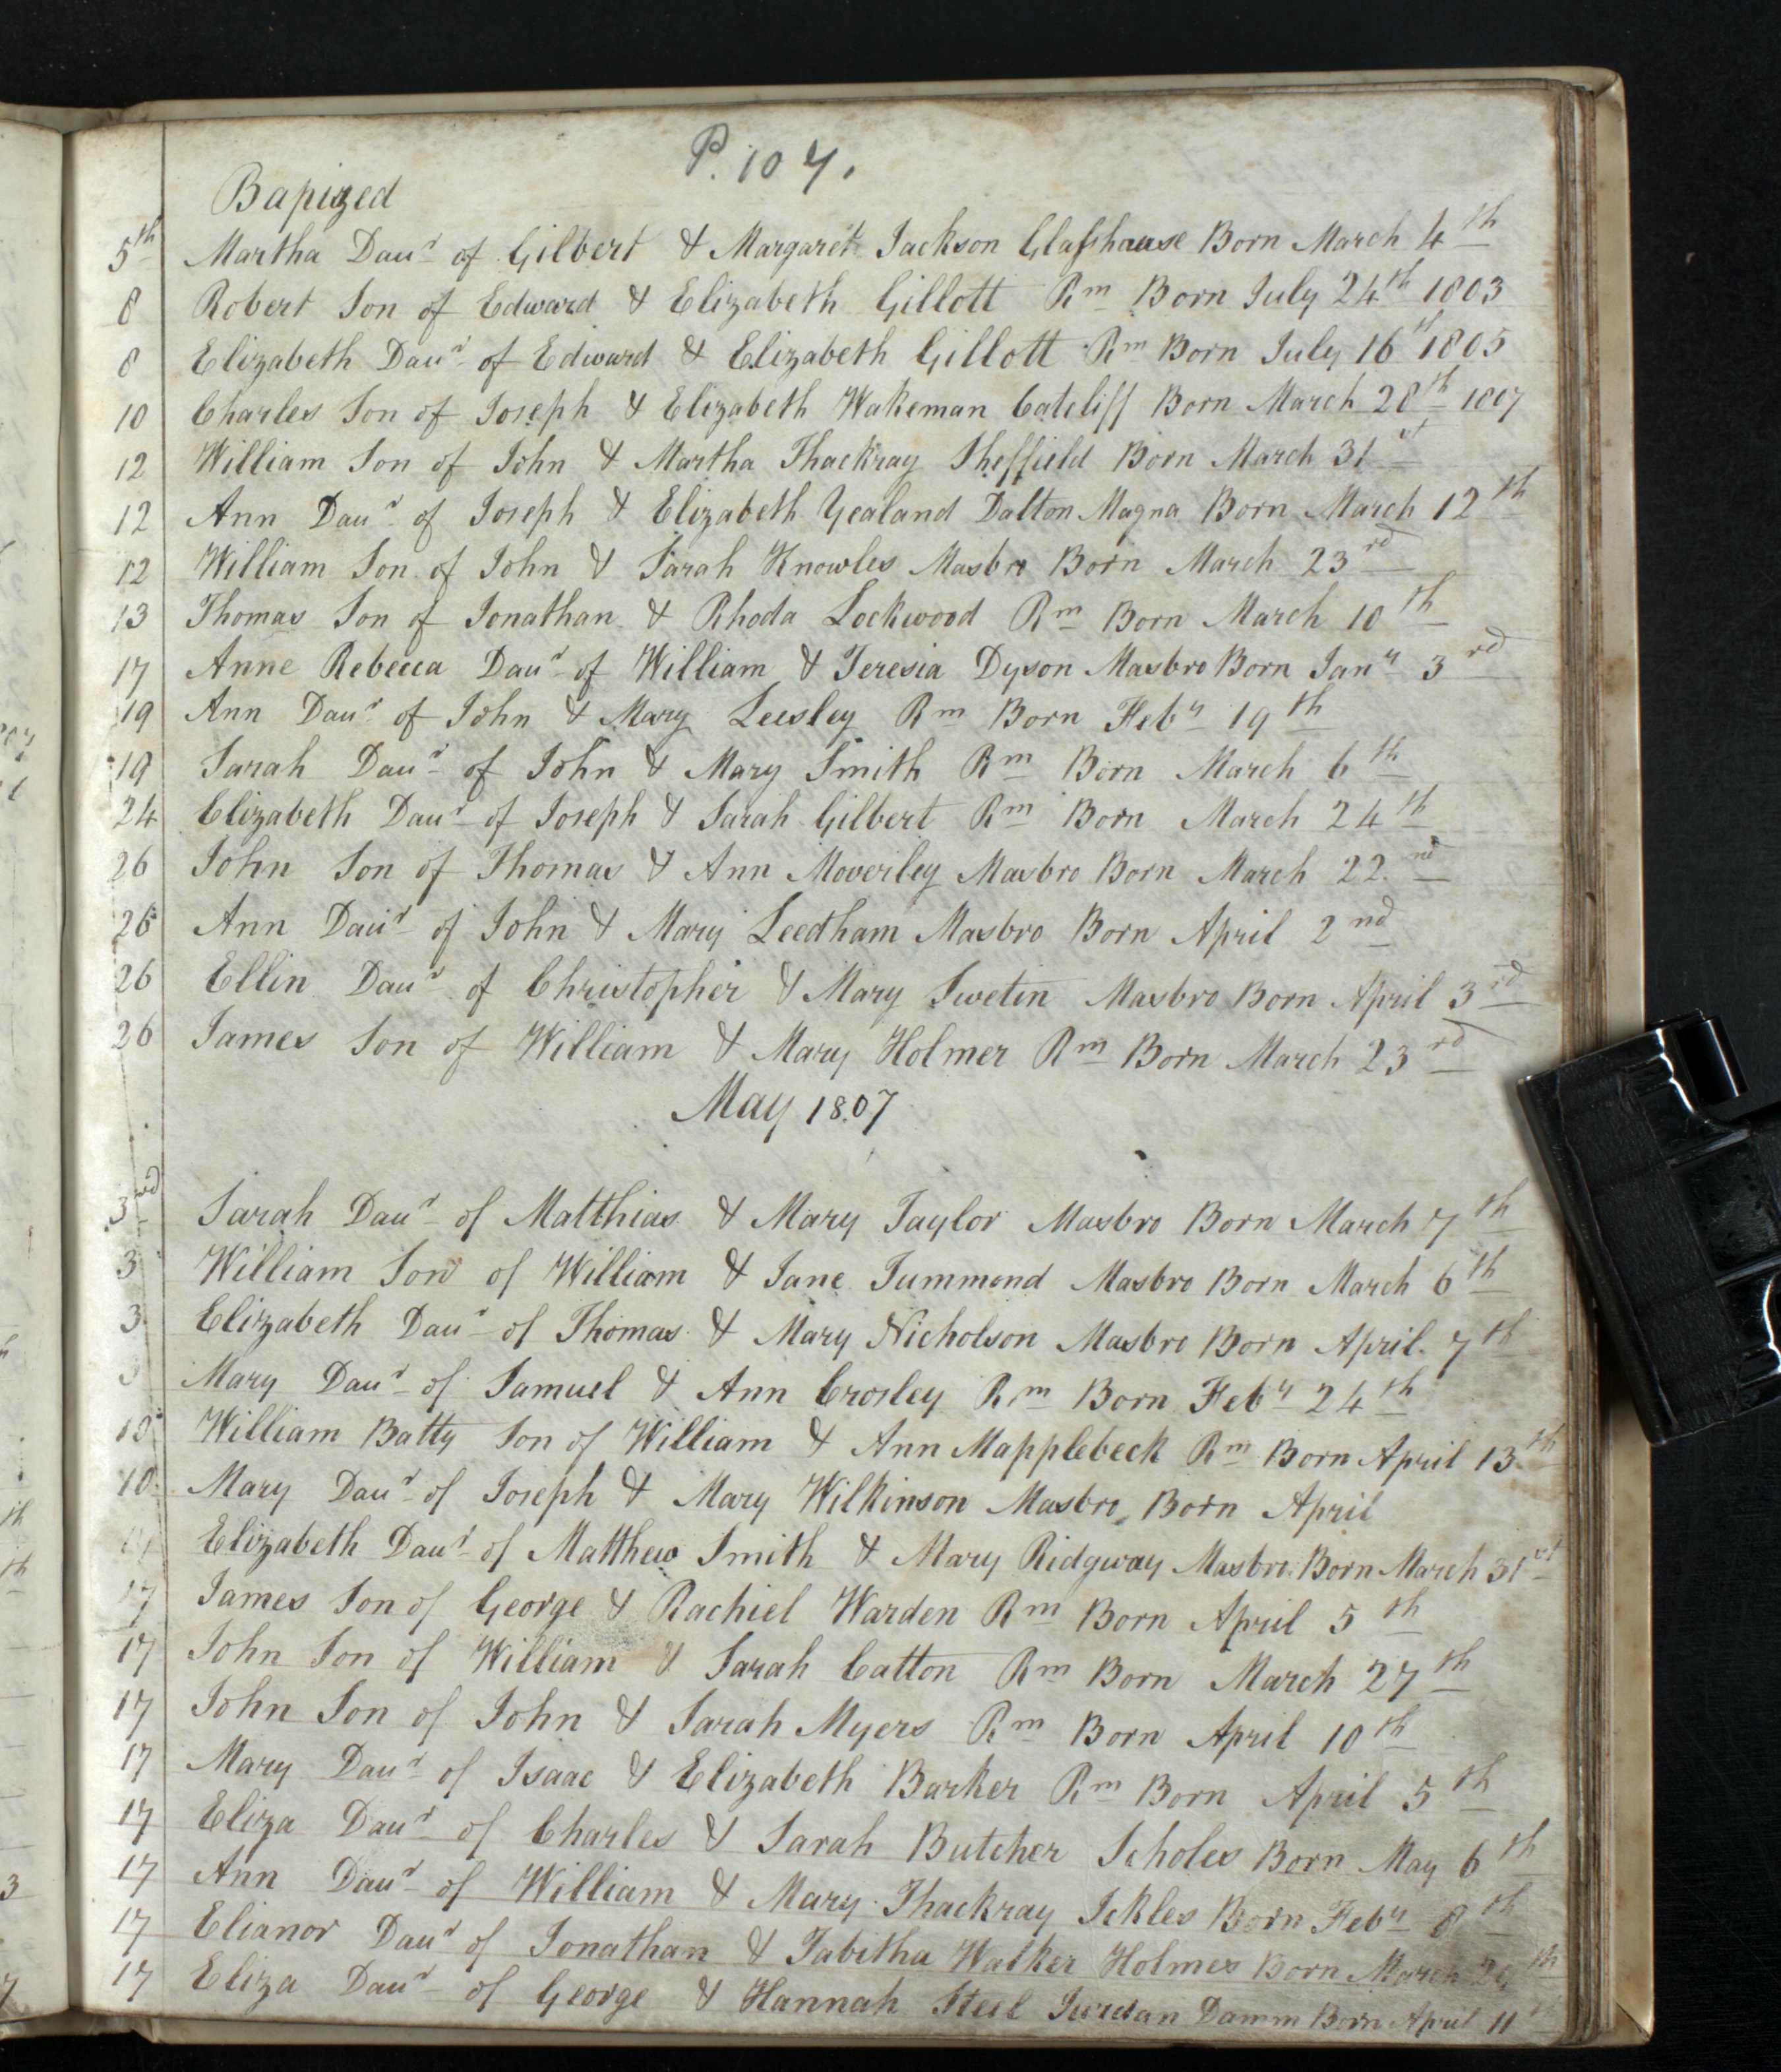 P. 107.
Bapized
5th Martha Daur of Gilbert & Margaret Jackson Glaſshouse Born March 4th
8 Robert Son of Edward & Elizabeth Gillott Rm Born July 24th 1803
8 Elizabeth Daur of Edward & Elizabeth Gillott Rm Born July 16th 1805
10 Charles Son of Joseph & Elizabeth Wakeman Catcliff Born March 28th 1807
12 William Son of John & Martha Thackray Sheffield Born March 31st
12 Ann Daur of Joseph & Elizabeth Yealand Dalton Magna Born March 12th
12 William Son of John & Sarah Knowles Masbro Born March 23rd
13 Thomas Son of Jonathan & Rhoda Lockwood Rm Born March 10th
17 Anne Rebecca Daur of William & Teresia Dyson Masbro Born Jany 3rd
19 Ann Daur of John & Mary Leesley Rm Born Feby 19th
19 Sarah Daur of John & Mary Smith Rm Born March 6th
24 Elizabeth Daur of Joseph & Sarah Gilbert Rm Born March 24th
26 John Son of Thomas & Ann Moverley Masbro Born March 22nd
26 Ann Daur of John & Mary Leedham Masbro Born April 2nd
26 Ellin Daur of Christopher & Mary Swetin Masbro Born April 3rd
26 James Son of William & Mary Holmer Rm Born March 23rd
May 1807
3rd Sarah Daur of Matthias & Mary Taylor Masbro Born March 7th
3 William Son of William & Jane Tummond Masbro Born March 6th
3 Elizabeth Daur of Thomas & Mary Nicholson Masbro Born April 7th
Mary Daur of Samuel & Ann Crosley Rm Born Feby 24th
William Batty Son of William & Ann Mapplebeck Rm Born April 13th
10 Mary Daur of Joseph & Mary Wilkinson Masbro Born April
Elizabeth Daur of Matthew Smith & Mary Ridgway Masbro Born March 31st
17 James Son of George & Rachiel Warden Rm Born April 5th
17 John Son of William & Sarah Catton Rm Born March 27th
17 John Son of John & Sarah Myers Rm Born April 10th
17 Mary Daur of Isaac & Elizabeth Barker Rm Born April 5th
17 Eliza Daur of Charles & Sarah Butcher Scholes Born May 6th
17 Ann Daur of William & Mary Thackray Ickles Born Feby 8th
17 Elianor Daur of Jonathan & Tabitha Walker Holmes Born March
17 Eliza Daur of George & Hannah Steel Jurdan Damm Born April 11